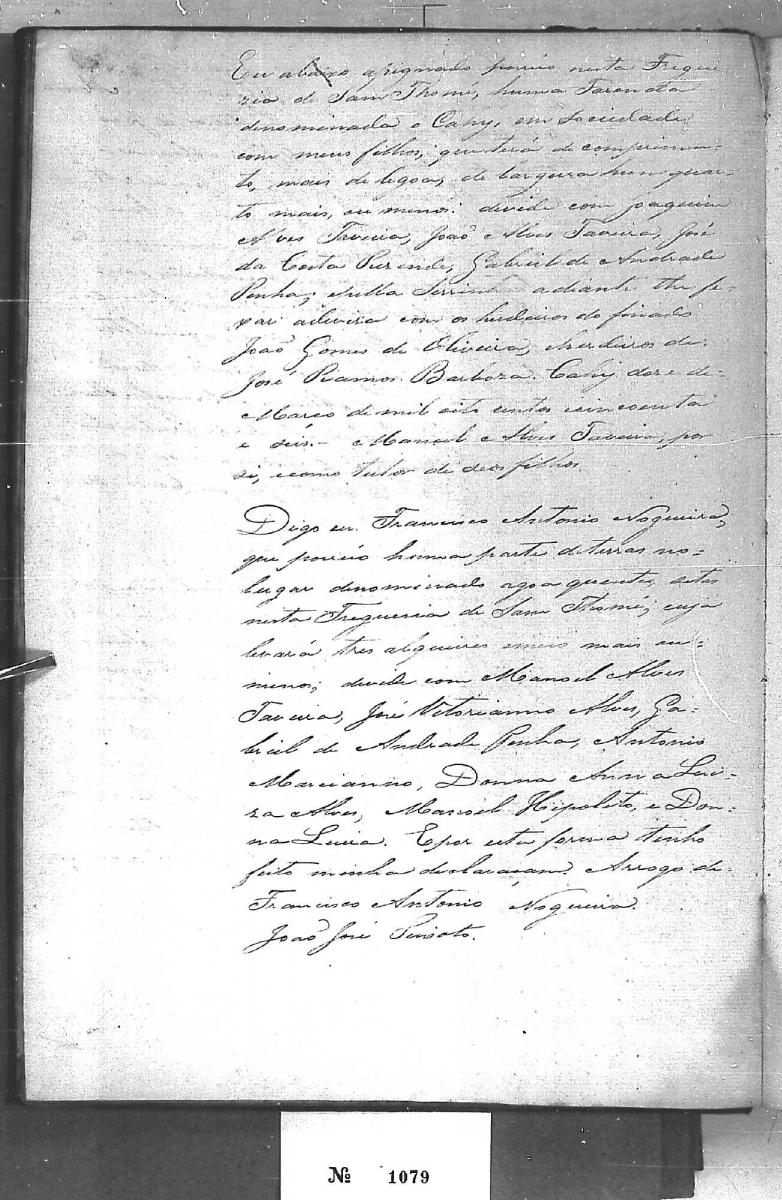 Eu abaixo assignado possuo nesta Fregue-
zia de Sam Thomé, huma Fazenda
denominada o Cahy, em sociedade
com meus filhos, que terá de comprimen-
to, mais de legoa, de largura hum quar-
to mais, ou menos: devide com Joaquim
Alves Taveira, João Alves Taveira, José
da Costa Rezende, Gabriel de Andrade
Penha, e pella Serrinha adiante the
a devira com os herdeiros do finado
João Gomes de Oliveira, e herdeiros de
José Ramos Barboza. Cahy doze de
Março de mil oito centos cincoenta
e seis. Manoel Alves Taveira, por
si, e como tutor de seos filhos.
Digo eu Francisco Antonio Nogueira,
que possuo huma parte de terras no
lugar denominado agoa quente, citas
nesta Freguezia de Sam Thomé, cuja
levará tres alqueires meio mais ou
menos; devide com Manoel Alves
Taveira, José Vitorianno Alves, Ga-
briel de Andrade Penha, Antonio
Marcianno, Donna Anna Lui-
za Alves, Manoel Hipolito, e Don-
na Luiza. E por esta forma tenho
feito minha declaraçam. Arrogo de
Francisco Antonio Nogueira.
João José Peixoto.
№ 1079